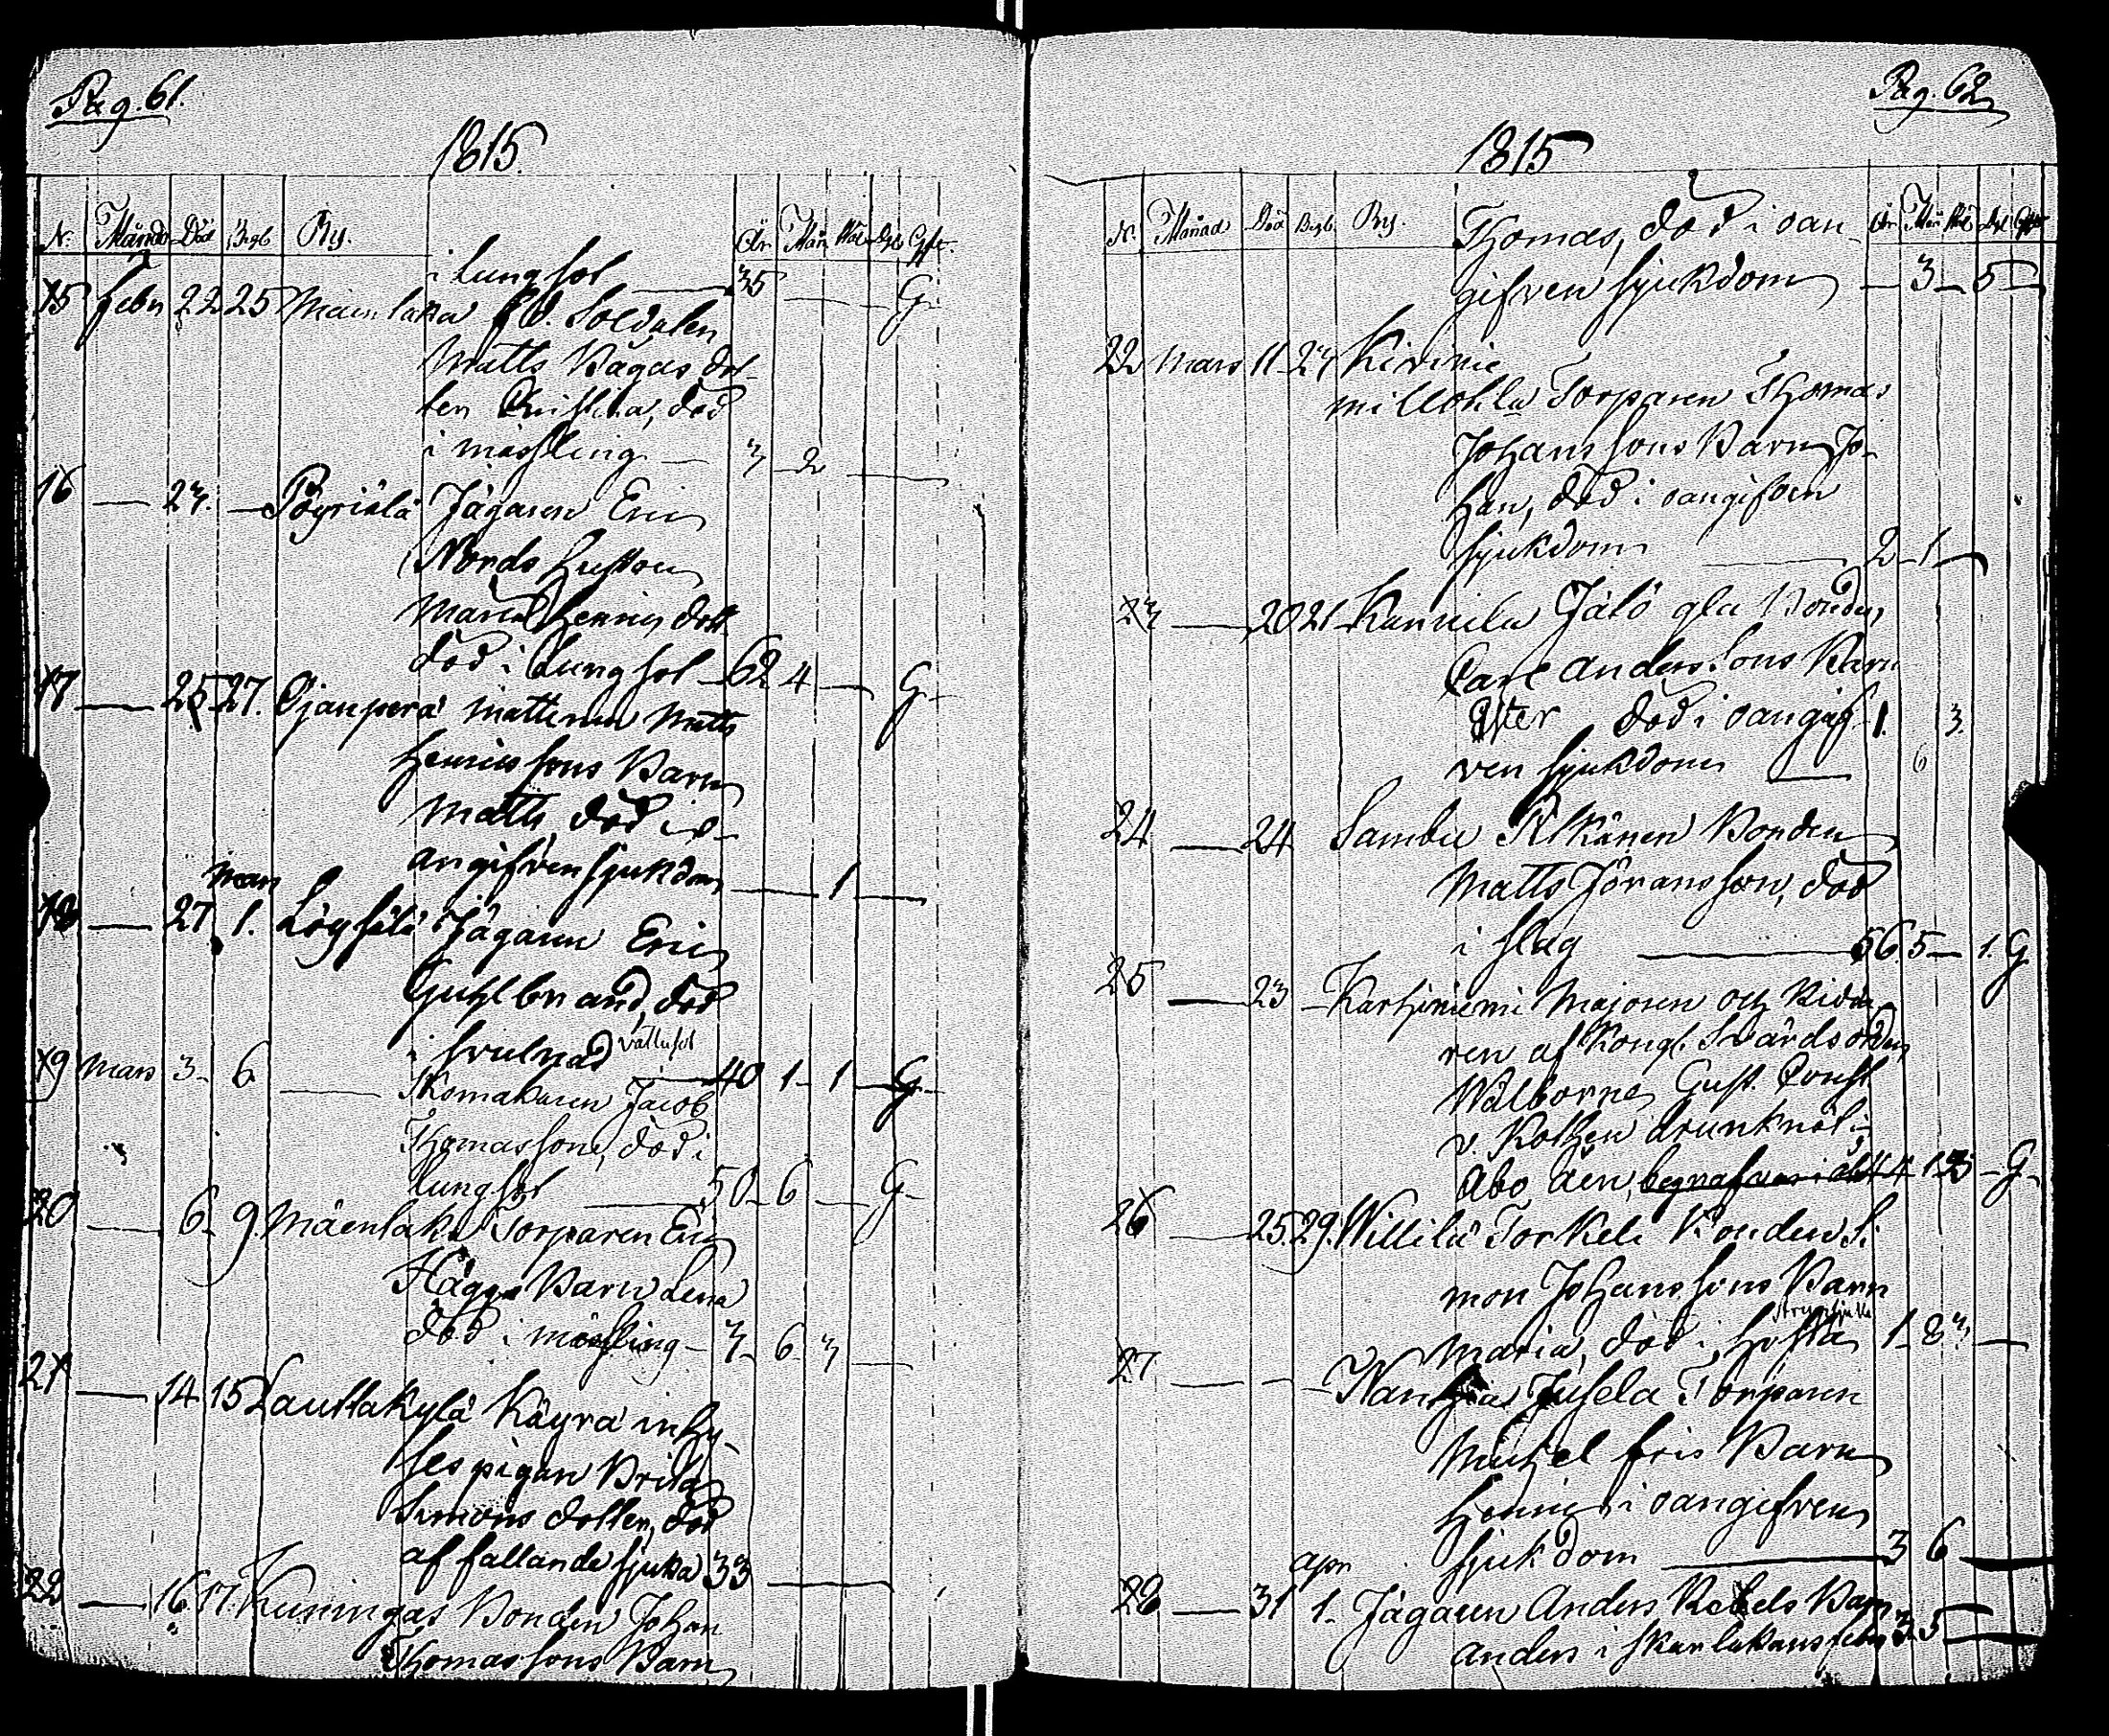 Pag. 61.
1815.
N. Månad Död Begr By. År Mån Wek Dgr Gift
i lungsot 35 G.
15 Febr 22 25 Mäenlaka f.d. Soldaten
Matts Vägas dot-
ter Christina, död
i mässling 3 2
16 — 23. — Pöyriälä Jägaren Eric
Nords hustru
Maria Henricsdott
död i Lungsot 62 4 — G.
17 — 25 27. Ojanperä Matts
Henrics sons Barn
Matts, död i o-
angifven sjukdom — 1 —
Mars
18 — 27 1. Jägaren Eric
död
i svulnad vattusot 40 1 1 G.
19 Mars 3 6 — Skomakaren Jacob
Thomasson, död i
lungsot 50 6 — G.
20 — 6 9. Mäenlaka Torparen Eric
Häggs Barn Lena
död i mässling 3 6 3 —
21 — 14 15 Lauttakylä Käyrä inhy-
sespigan Brita
Simons dotter, död
af fallandesjuka 33 —
22 — 16 17. Kuningas Bonden Johan
Thomassons Barn
Pag. 62
1815
N. Månad Död Begr. By. År Mån Wek Dgr Gift
Thomas, död i oan-
gifven sjukdom — 3 — 5 —
22 Mars 11 23
Torparen Thomas
Johanssons Barn Jo-
han, död i oangifven
sjukdom 2 1 —
23 — 20 21 Kannila Jälö gla Bonden
Carl Anderssons Barn
död i oangif- 1. 3.
ven sjukdom — 6
24 — 24 Sambu Bonden
Matts Jöransson, död
i slag 56 5 — 1. G
25 — 23 — Karhiniemi Majoren och Ridda-
ren af Kongl. Svärdsorden
Wälborne Gust. Const
v. Kothen drunknat i
Åbo åen, 44 1 G.
26 — 25. 29. Willilä Torkeli Bonden Si-
mon Johanssons Barn
Maria, död i hosta strypsjuka 1 8 3 —
27 — — — Jusela Torparen
Michel fris Barn
Henric i oangifven
sjukdom 3 6 —
Apr
28 — 31 1. Jägaren Anders Barn
Anders i skarlakansfeber 3 5 —